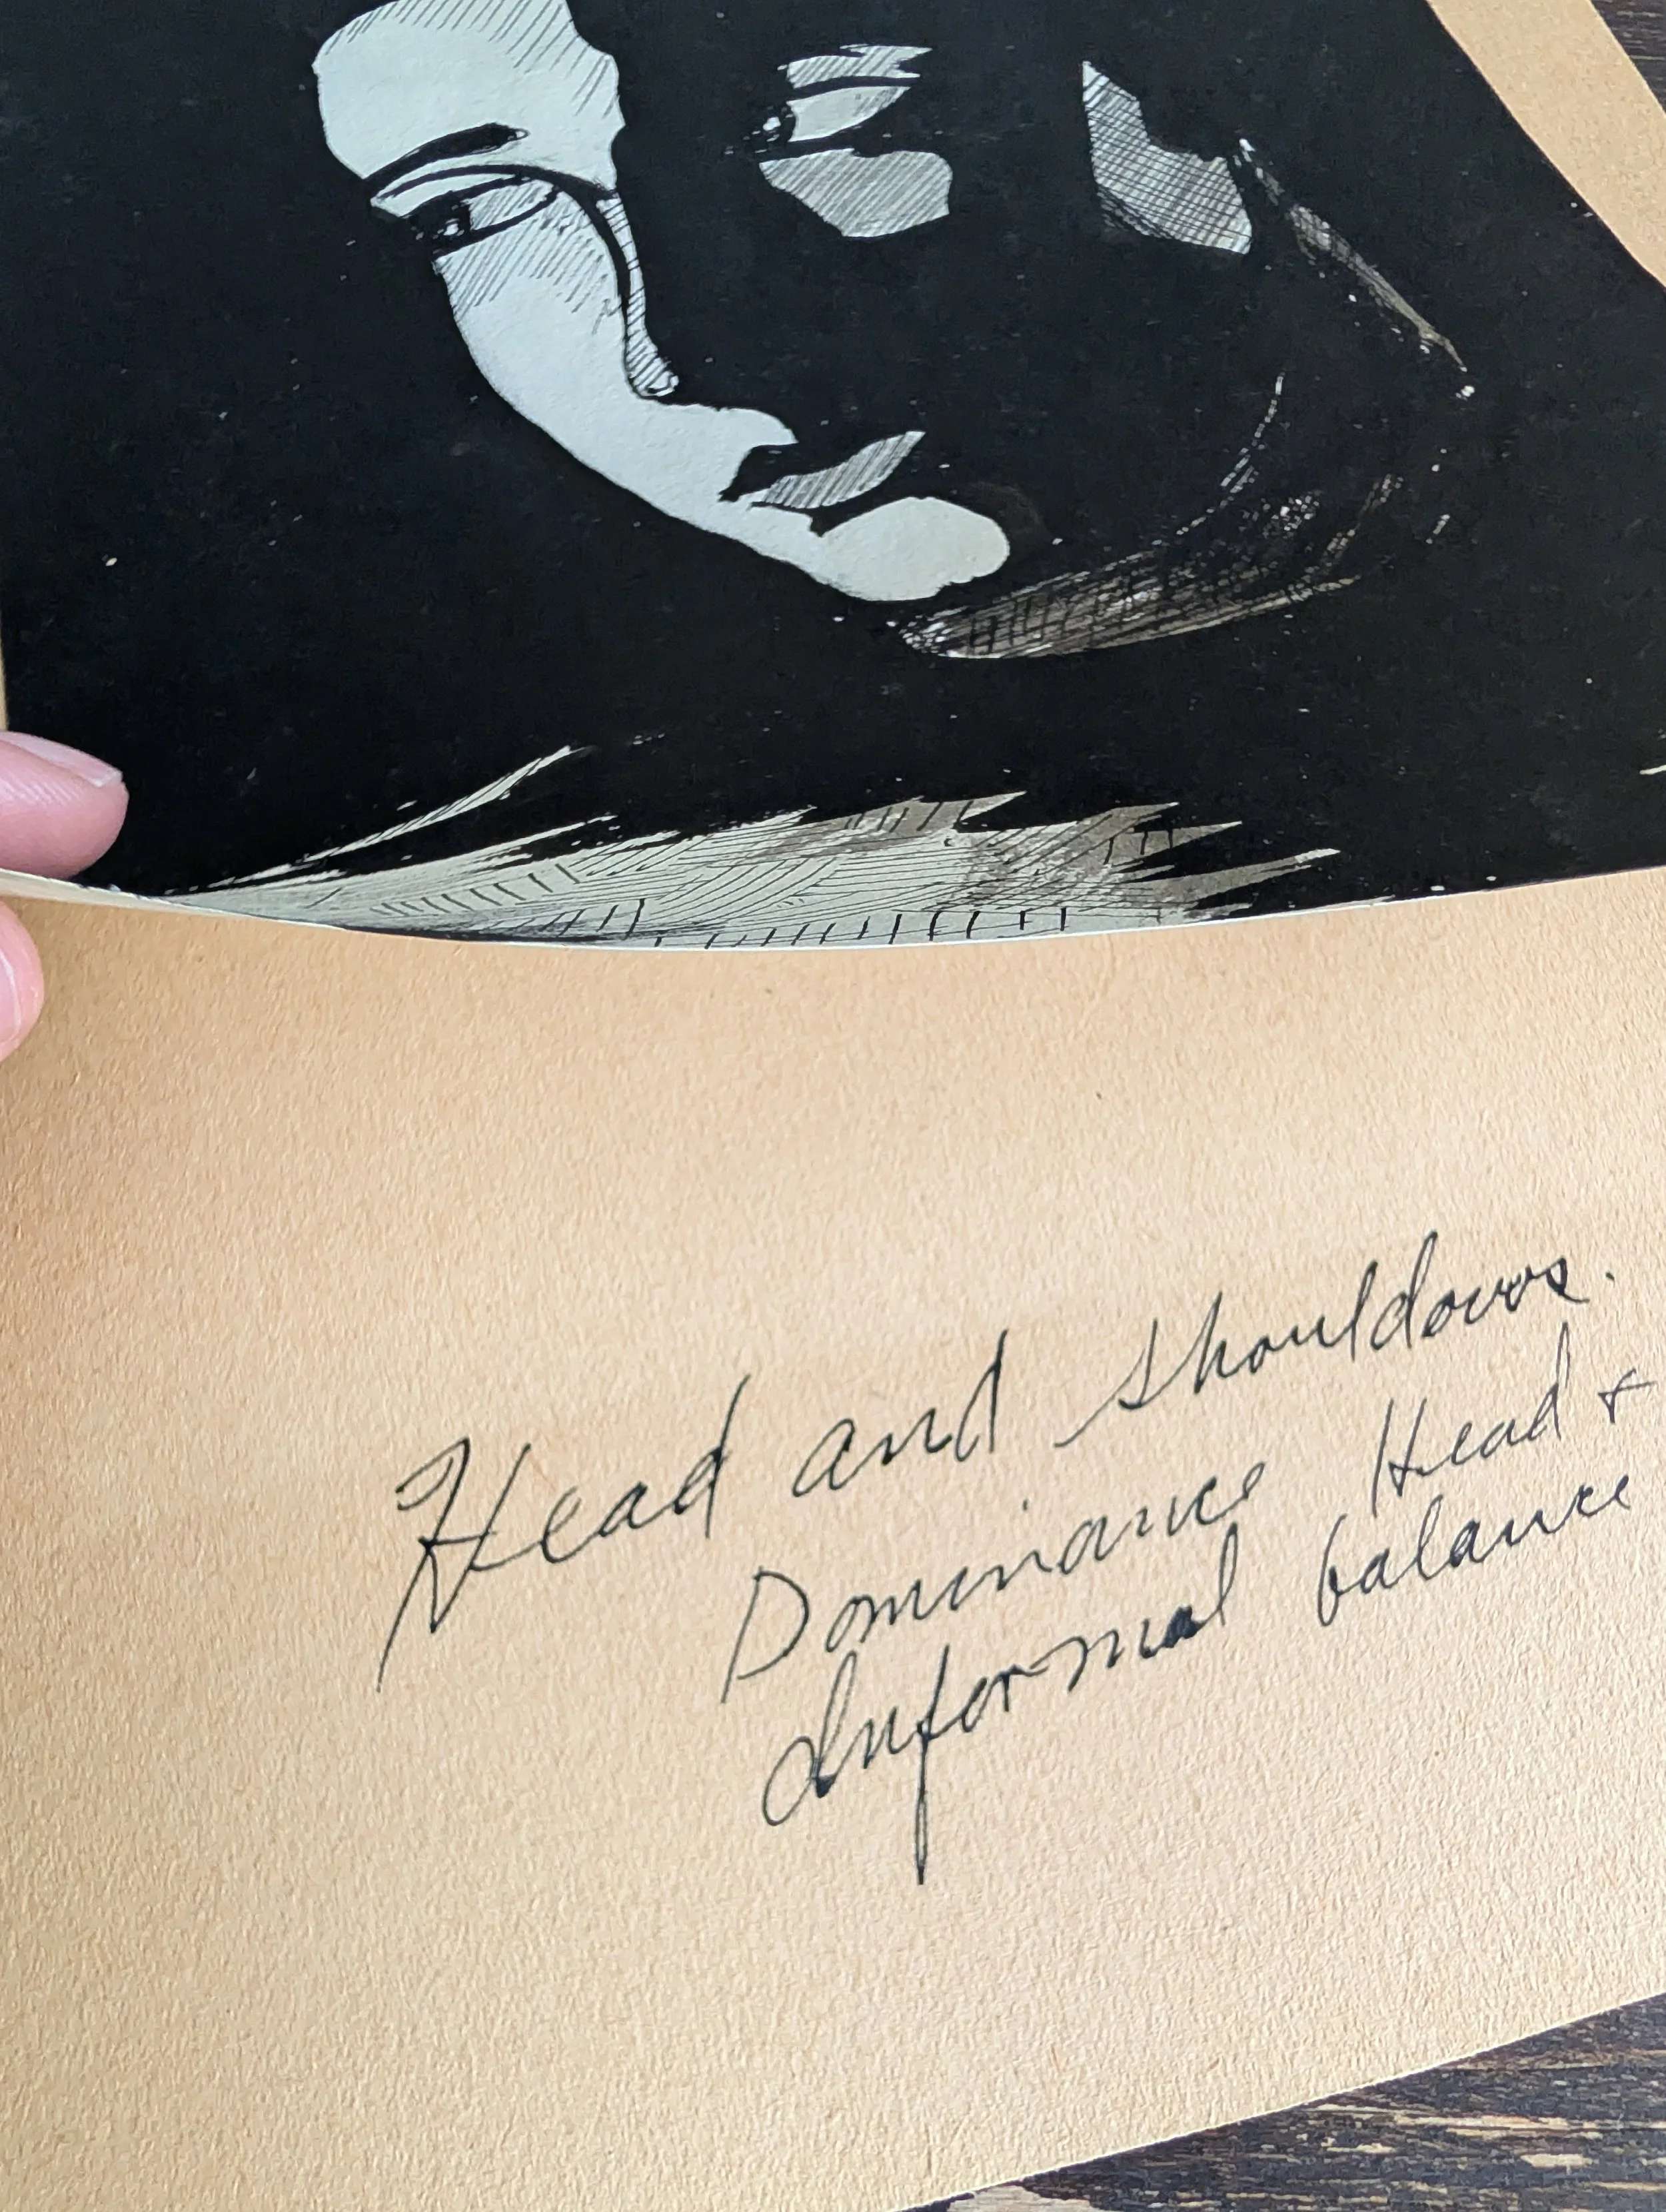 Head and shouldovrs.
Dominance Head +
Informal balance